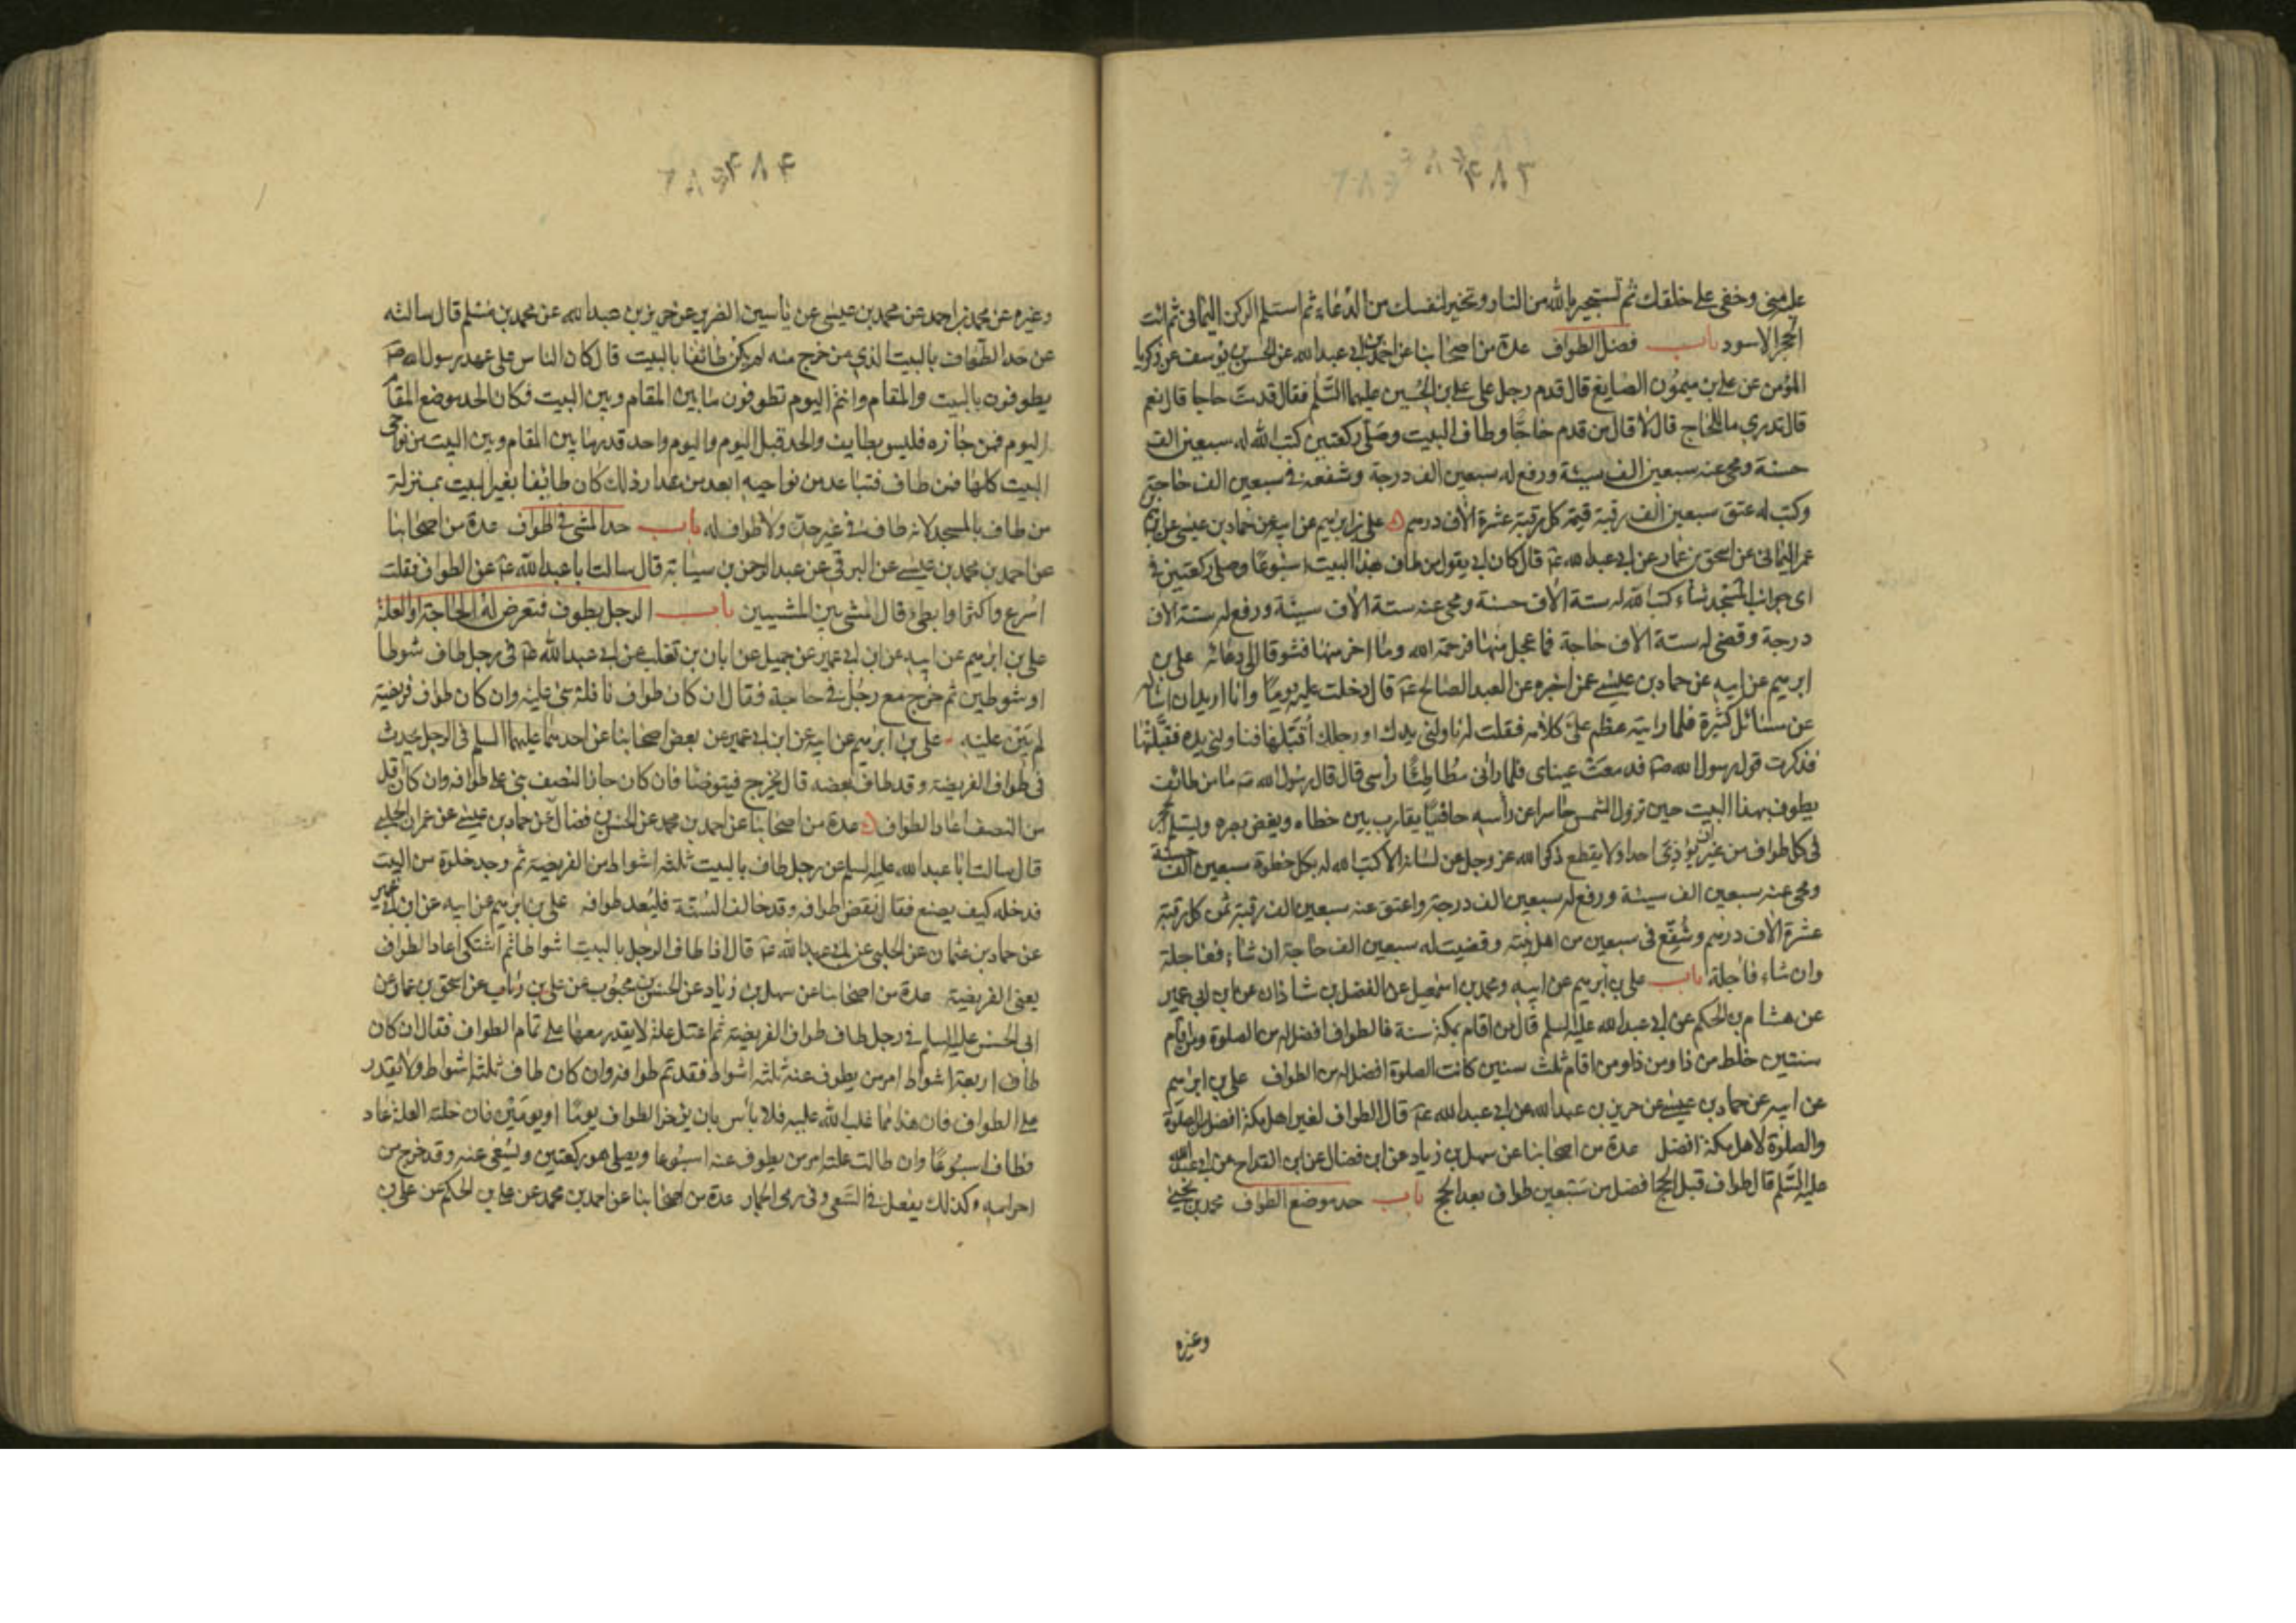 ۴۸۳
علي مني وخفي على خلقك ثم تستجير بالله من النار وتخير لنفسك من الدعاء ثم استلم الركن اليماني ثم ائت
الحجر الاسود باب فضل الطواف عدة من اصحابنا عن احمد بن ابي عبد الله عن الحسن بن يوسف عن زكريا
المؤمن عن علي بن ميمون الصايغ قال قدم رجل على علي بن الحسين عليهما السلم فقال قدمت حاجا قال نعم
قال تدري ما للحاج قال لا قال من قدم حاجا وطاف بالبيت وصلى ركعتين كتب الله له سبعين الف
حسنة ومحى عنه سبعين الف سيئة ورفع له سبعين الف درجة وشفعه في سبعين الف حاجة
وكتب له عتق سبعين الف رقبة قيمة كل رقبة عشرة الاف درهم علي بن ابرهيم عن ابيه عن حماد بن عيسى عن ابرهيم بن
عمر اليماني عن اسحق بن عمار عن ابي عبد الله ع قال كان ابي يقول من طاف بهذا البيت اسبوعا وصلى ركعتين في
اي جوانب المسجد شاء كتب الله له ستة الاف حسنة ومحى عنه ستة الاف سيئة ورفع له ستة الاف
درجة وقضى له ستة الاف حاجة فما عجل منها فرحمة الله وما اخر منها فشوقا الى دعائه علي بن
ابرهيم عن ابيه عن حماد بن عيسى عمن اخبره عن العبد الصالح ع قال دخلت عليه يوما وانا اريد ان اساله
عن مسائل كثيرة فلما رايته عظم علي كلامه فقلت له ناولني يدك او رجلك اقبلها فناولني يده فقبلتها
فذكرت قول رسول الله ص فدمعت عيناى فلما رآني مطاطئا رأسي قال قال رسول الله ص ما من طائف
يطوف بهذا البيت حين تزول الشمس حاسرا عن رأسه حافيا يقارب بين خطاه ويغض بصره ويستلم الحجر
في كل طواف من غير ان يؤذي احدا ولا يقطع ذكر الله عز وجل عن لسانه الا كتب الله له بكل خطوة سبعين الف حسنة
ومحى عنه سبعين الف سيئة ورفع له سبعين الف درجة واعتق عنه سبعين الف رقبة ثمن كل رقبة
عشرة الاف درهم وشفع في سبعين من اهل بيته وقضيت له سبعين الف حاجة ان شاء فعاجلة
وان شاء فآجلة باب علي بن ابرهيم عن ابيه ومحمد بن اسمعيل عن الفضل بن شاذان عن ابن ابي عمير
عن هشام بن الحكم عن ابي عبد الله عليه السلم قال من اقام بمكة سنة فالطواف افضل له من الصلوة ومن اقام
سنتين خلط من ذا ومن ذا ومن اقام ثلث سنين كانت الصلوة افضل له من الطواف علي بن ابرهيم
عن ابيه عن حماد بن عيسى عن حريز بن عبد الله عن ابي عبد الله ع قال الطواف لغير اهل مكة افضل من الصلوة
والصلوة لاهل مكة افضل عدة من اصحابنا عن سهل بن زياد عن ابن فضال عن ابن القداح عن ابي عبد الله
عليه السلم قال طواف قبل الحج افضل من سبعين طواف بعد الحج باب حد موضع الطواف محمد بن يحيى
وغيره
۴۸۴
وغيره عن محمد بن احمد عن محمد بن عيسى عن ياسين الضرير عن حريز بن عبد الله عن محمد بن مسلم قال سالته
عن حد الطواف بالبيت الذي من خرج منه لم يكن طائفا بالبيت قال كان الناس على عهد رسول الله ص
يطوفون بالبيت والمقام وانتم اليوم تطوفون ما بين المقام وبين البيت فكان الحد موضع المقام
اليوم فمن جازه فليس بطايف والحد قبل اليوم واليوم واحد قدر ما بين المقام وبين البيت من نواحي
البيت كلها فمن طاف فتباعد من نواحيه ابعد من مقدار ذلك كان طائفا بغير البيت بمنزلة
من طاف بالمسجد لانه طاف في غير حد ولا طواف له باب حد المشي في الطواف عدة من اصحابنا
عن احمد بن محمد بن عيسى عن البرقي عن عبد الرحمن بن سيابة قال سالت ابا عبد الله ع عن الطواف فقلت
اسرع واكثر او ابطي قال مشي بين المشيين باب الرجل يطوف فتعرض له الحاجة او العلة
علي بن ابرهيم عن ابيه عن ابن ابي عمير عن جميل عن ابان بن تغلب عن ابي عبد الله ع في رجل طاف شوطا
او شوطين ثم خرج مع رجل في حاجة فقال ان كان طواف نافلة بنى عليه وان كان طواف فريضة
لم يبن عليه علي بن ابرهيم عن ابيه عن ابن ابي عمير عن بعض اصحابنا عن احدهما عليهما السلم في الرجل يحدث
في طواف الفريضة وقد طاف بعضه قال يخرج فيتوضا فان كان جاز النصف بنى على طوافه وان كان اقل
من النصف اعاد الطواف عدة من اصحابنا عن احمد بن محمد عن الحسن بن فضال عن حماد بن عيسى عن عمران الحلبي
قال سالت ابا عبد الله عليه السلم عن رجل طاف بالبيت ثلثة اشواط من الفريضة ثم وجد خلوة من البيت
فدخله كيف يصنع فقال نقض طوافه وقد خالف السنة فليعد طوافه علي بن ابرهيم عن ابيه عن ابن ابي عمير
عن حماد بن عثمان عن الحلبي عن ابي عبد الله ع قال اذا طاف الرجل بالبيت اشواطا ثم اشتكى اعاد الطواف
يعني الفريضة عدة من اصحابنا عن سهل بن زياد عن الحسن بن محبوب عن علي بن رئاب عن اسحق بن عمار عن
ابي الحسن عليه السلم في رجل طاف طواف الفريضة ثم اعتل علة لا يقدر معها على تمام الطواف فقال ان كان
طاف اربعة اشواط امر من يطوف عنه ثلثة اشواط فقد تم طوافه وان كان طاف ثلثة اشواط ولا يقدر
على الطواف فان هذا مما غلب الله عليه فلا بأس بان يؤخر الطواف يوما او يومين فان خلته العلة عاد
فطاف اسبوعا وان طالت علته امر من يطوف عنه اسبوعا ويصلي هو ركعتين ويسعى عنه وقد خرج من
احرامه وكذلك يفعل في السعي وفي رمي الجمار عدة من اصحابنا عن احمد بن محمد عن علي بن الحكم عن علي بن